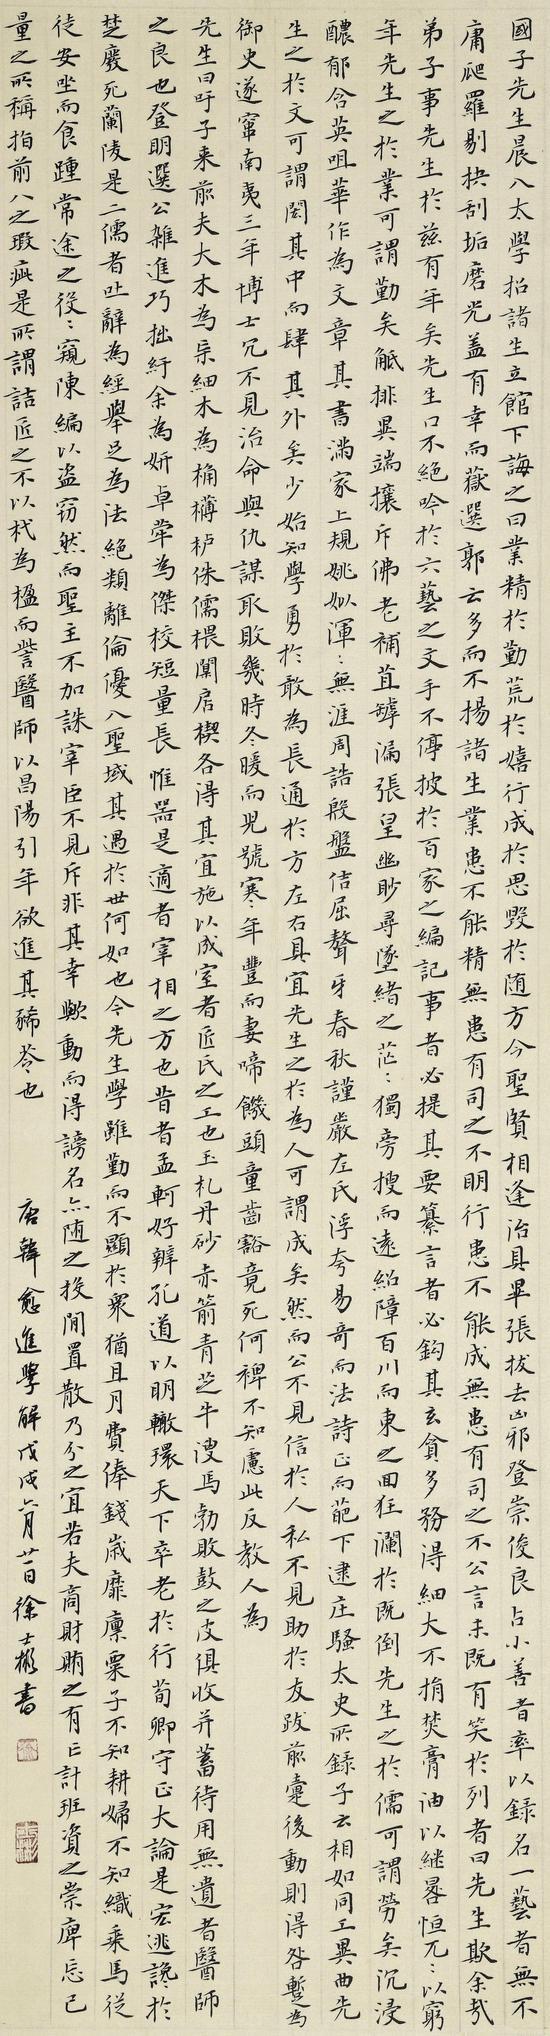 國子先生晨入太學招諸生立館下誨之曰業精於勤荒於嬉行成於思毀於随方今聖賢相逢治具畢張拔去凶邪登崇俊良占小善者率以録名一藝者無不
庸爬羅剔抉刮垢磨光盖有幸而獲選郭云多而不揚諸生業患不能精無患有司之不明行患不能成無患有司之不公言未既有笑於列者曰先生欺余哉
弟子事先生於兹有年矣先生口不絕吟於六藝之文手不停披於百家之編記事者必提其要纂言者必鈎其玄貪多務得細大不捐焚膏油以継晷恒兀〻以窮
年先生之於業可謂勤矣觝排異端攘斥佛老補苴罅漏張皇幽眇尋墜緒之茫〻獨旁搜而遠紹障百川而東之回狂瀾於既倒先生之於儒可謂勞矣沉浸
醲郁含英咀華作為文章其書滿家上規姚姒渾〻無涯周誥殷盤佶屈聱牙春秋謹嚴左氏浮夸易奇而法詩正而葩下逮庄騷太史所録子云相如同工異曲先
生之於文可謂閎其中而肆其外矣少始知學勇於敢為長通於方左右具宜先生之於為人可謂成矣然而公不見信於人私不見助於友跋前疐後動則得咎暫為
御史遂竄南夷三年博士冗不見治命與仇謀取敗幾時冬暖而兒號寒年豐而妻啼饑頭童齒豁竟死何裨不知慮此反教人為
先生曰吁子來前夫大木為杗細木為桷欂栌侏儒椳闑扂楔各得其宜施以成室者匠氏之工也玉札丹砂赤箭青芝牛溲馬勃敗鼓之皮俱收并蓄待用無遺者醫師
之良也登明選公雜進巧拙紆余為妍卓犖為傑校短量長惟器是適者宰相之方也昔者孟軻好辨孔道以明轍環天下卒老於行荀卿守正大論是宏逃讒於
楚廢死蘭陵是二儒者吐辭為經舉足為法絕類離倫優入聖域其遇於世何如也今先生學雖勤而不顯於衆猶且月費俸錢歲靡廪粟子不知耕婦不知織乘馬從
徒安坐而食踵常途之役〻窺陳編以盜窃然而聖主不加誅宰臣不見斥非其幸歟動而得謗名亦随之投閒置散乃分之宜若夫商財賄之有亡計班資之崇庳忘己
量之所稱指前人之瑕疵是所謂詰匠之不以杙為楹而訾醫師以昌陽引年欲進其豨苓也
唐韓愈進學解戊戌六月廿一日徐士彬書